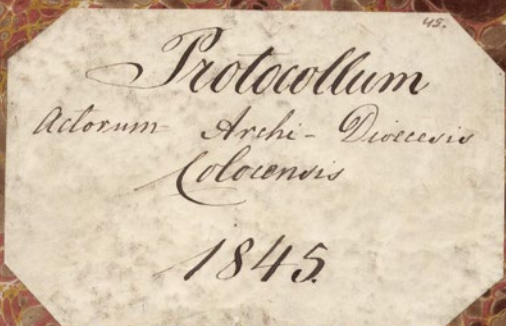 45.
Protocollum
Actorum Archi-Dioecesis
Colocensis
1845.